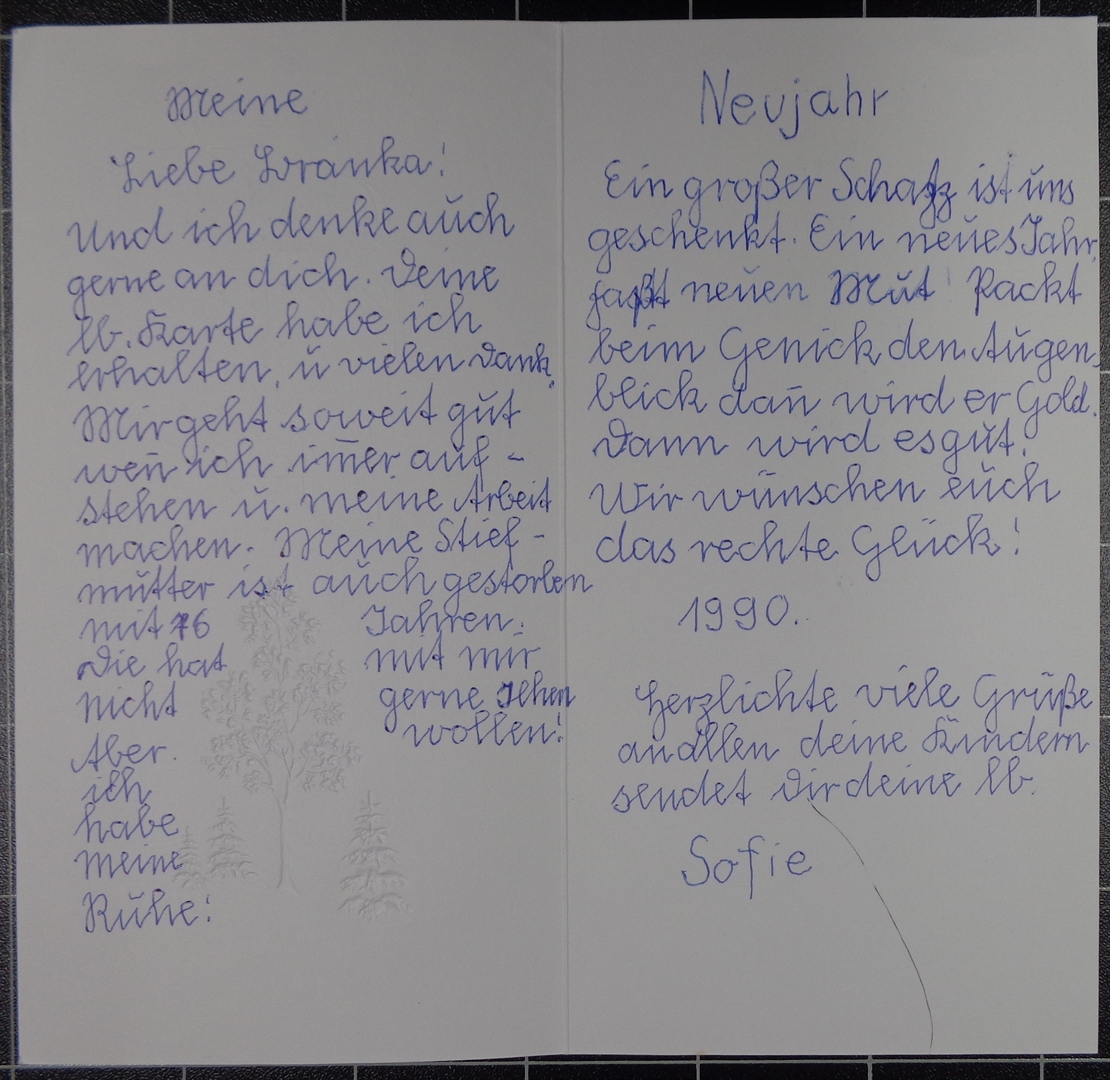 Meine
Liebe Dranka!
Und ich denke auch
gerne an dich. Deine
lb. Karte habe ich
erhalten, u vielen Dank.
Mir geht soweit gut
weñ ich im̄er auf-
stehen u. meine Arbeit
machen. Meine Stief-
mutter ist auch gestorben
mit 76 Jahren.
Die hat mit mir
nicht gerne gehen
wollen!
Aber
ich
habe
meine
Ruhe!
Neujahr
Ein großer Schatz ist uns
geschenkt. Ein neues Jahr,
faßt neuen Mut! Packt
beim Genick den Augen,
blick dañ wird er Gold.
Dann wird es gut!
Wir wünschen euch
das rechte Glück!
1990.
Herzlichte viele Grüße
an allen deine Kindern
sendet Dir deine lb.
Sofie